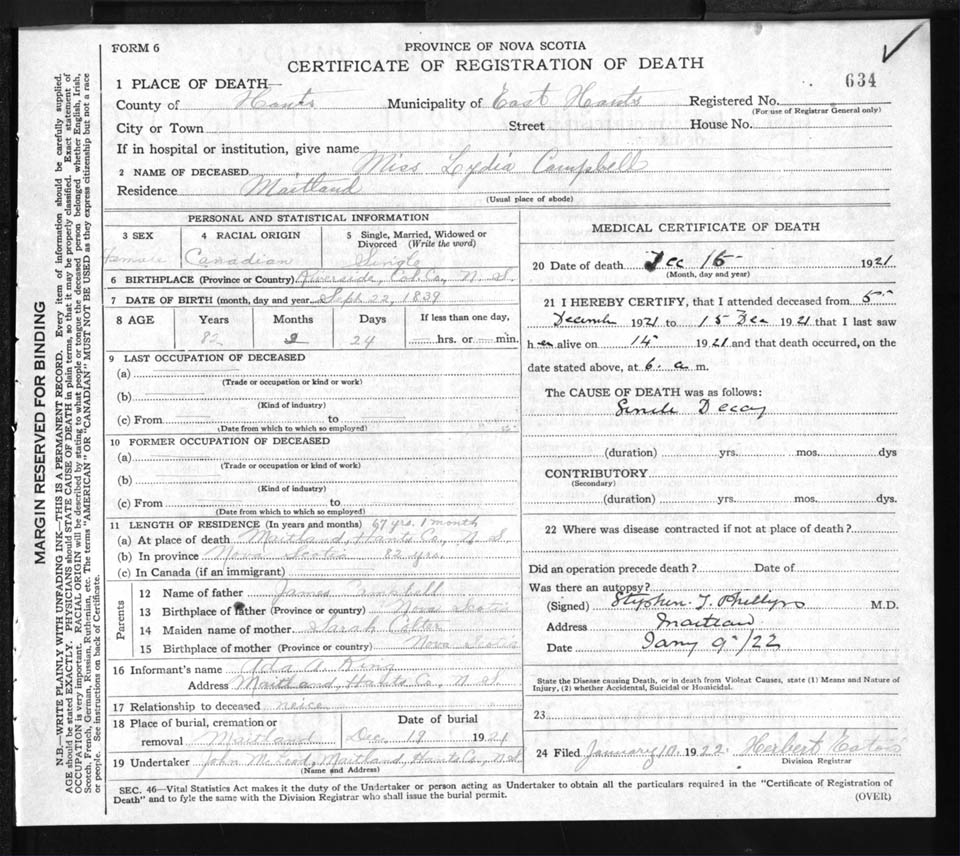 FORM 6
PROVINCE OF NOVA SCOTIA
CERTIFICATE OF REGISTRATION OF DEATH
634
1 PLACE OF DEATH—
County of Hants Municipality of East Hants Registered No.
(For use of Registrar General only)
City or Town Street House No.
If in hospital or institution, give name
2 NAME OF DECEASED Miss Lydia Campbell
Residence Maitland
(Usual place of abode)
PERSONAL AND STATISTICAL INFORMATION
3 SEX 4 RACIAL ORIGIN 5 Single, Married, Widowed or Divorced (Write the word)
Female Canadian Single
6 BIRTHPLACE (Province or Country) Riverside, Col. Co., N. S.
7 DATE OF BIRTH (month, day and year Sept 22, 1839
8 AGE Years Months Days If less than one day,
82 2 24 hrs. or min.
9 LAST OCCUPATION OF DECEASED
(a)
(Trade or occupation or kind or work)
(b)
(Kind of industry)
(c) From to
(Date from which to which so employed)
10 FORMER OCCUPATION OF DECEASED
(a)
(Trade or occupation or kind of work)
(b)
(Kind of industry)
(c) From to
(Date from which to which so employed)
11 LENGTH OF RESIDENCE (In years and months) 67 yrs. 1 month
(a) At place of death Maitland, Hants Co., N. S.
(b) In province Nova Scotia 82 yrs.
(c) In Canada (if an immigrant)
Parents
12 Name of father James Campbell
13 Birthplace of father (Province or country) Nova Scotia
14 Maiden name of mother Sarah
15 Birthplace of mother (Province or country) Nova Scotia
16 Informant's name Ada A. King
Address Maitland, Hants Co., N. S.
17 Relationship to deceased neice
18 Place of burial, cremation or Date of burial
removal Maitland Dec. 19 1921
19 Undertaker John McLeod, Maitland, Hants Co., N.S.
(Name and Address)
MEDICAL CERTIFICATE OF DEATH
20 Date of death Dec 15 1921
(Month, day and year)
21 I HEREBY CERTIFY, that I attended deceased from 5
December 1921 to 15 Dec 1921 that I last saw
her alive on 14 1921 and that death occurred, on the
date stated above, at 6. a m.
The CAUSE OF DEATH was as follows:
Senile Decay
(duration) yrs. mos. dys
CONTRIBUTORY
(Secondary)
(duration) yrs. mos. dys.
22 Where was disease contracted if not at place of death?
Did an operation precede death? Date of
Was there an autopsy?
(Signed) Stephen T. Phillips M.D.
Address Maitland
Date Jany 9/22
State the Disease causing Death, or in death from Violent Causes, state (1) Means and Nature of
Injury, (2) whether Accidental, Suicidal or Homicidal.
23
24 Filed January 10. 1922. Herbert Eaton
Division Registrar
SEC. 46—Vital Statistics Act makes it the duty of the Undertaker or person acting as Undertaker to obtain all the particulars required in the "Certificate of Registration of
Death" and to fyle the same with the Division Registrar who shall issue the burial permit.
(OVER)
MARGIN RESERVED FOR BINDING
N.B.—WRITE PLAINLY WITH UNFADING INK—THIS IS A PERMANENT RECORD. Every item of information should be carefully supplied.
AGE should be stated EXACTLY. PHYSICIANS should STATE CAUSE OF DEATH in plain terms, so that it may be properly classified. Exact statement of
OCCUPATION is very important. RACIAL ORIGIN will be described by stating to what people or tongue the deceased person belonged whether English, Irish,
Scotch, French, German, Russian, Ruthenian, etc. The terms "AMERICAN" OR "CANADIAN" MUST NOT BE USED as they express citizenship but not a race
or people. See instructions on back of Certificate.